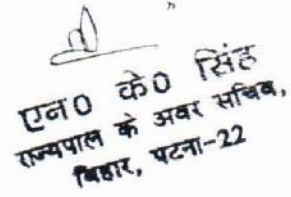 एन० के० सिंह
राज्यपाल के अवर सचिव,
बिहार, पटना-22